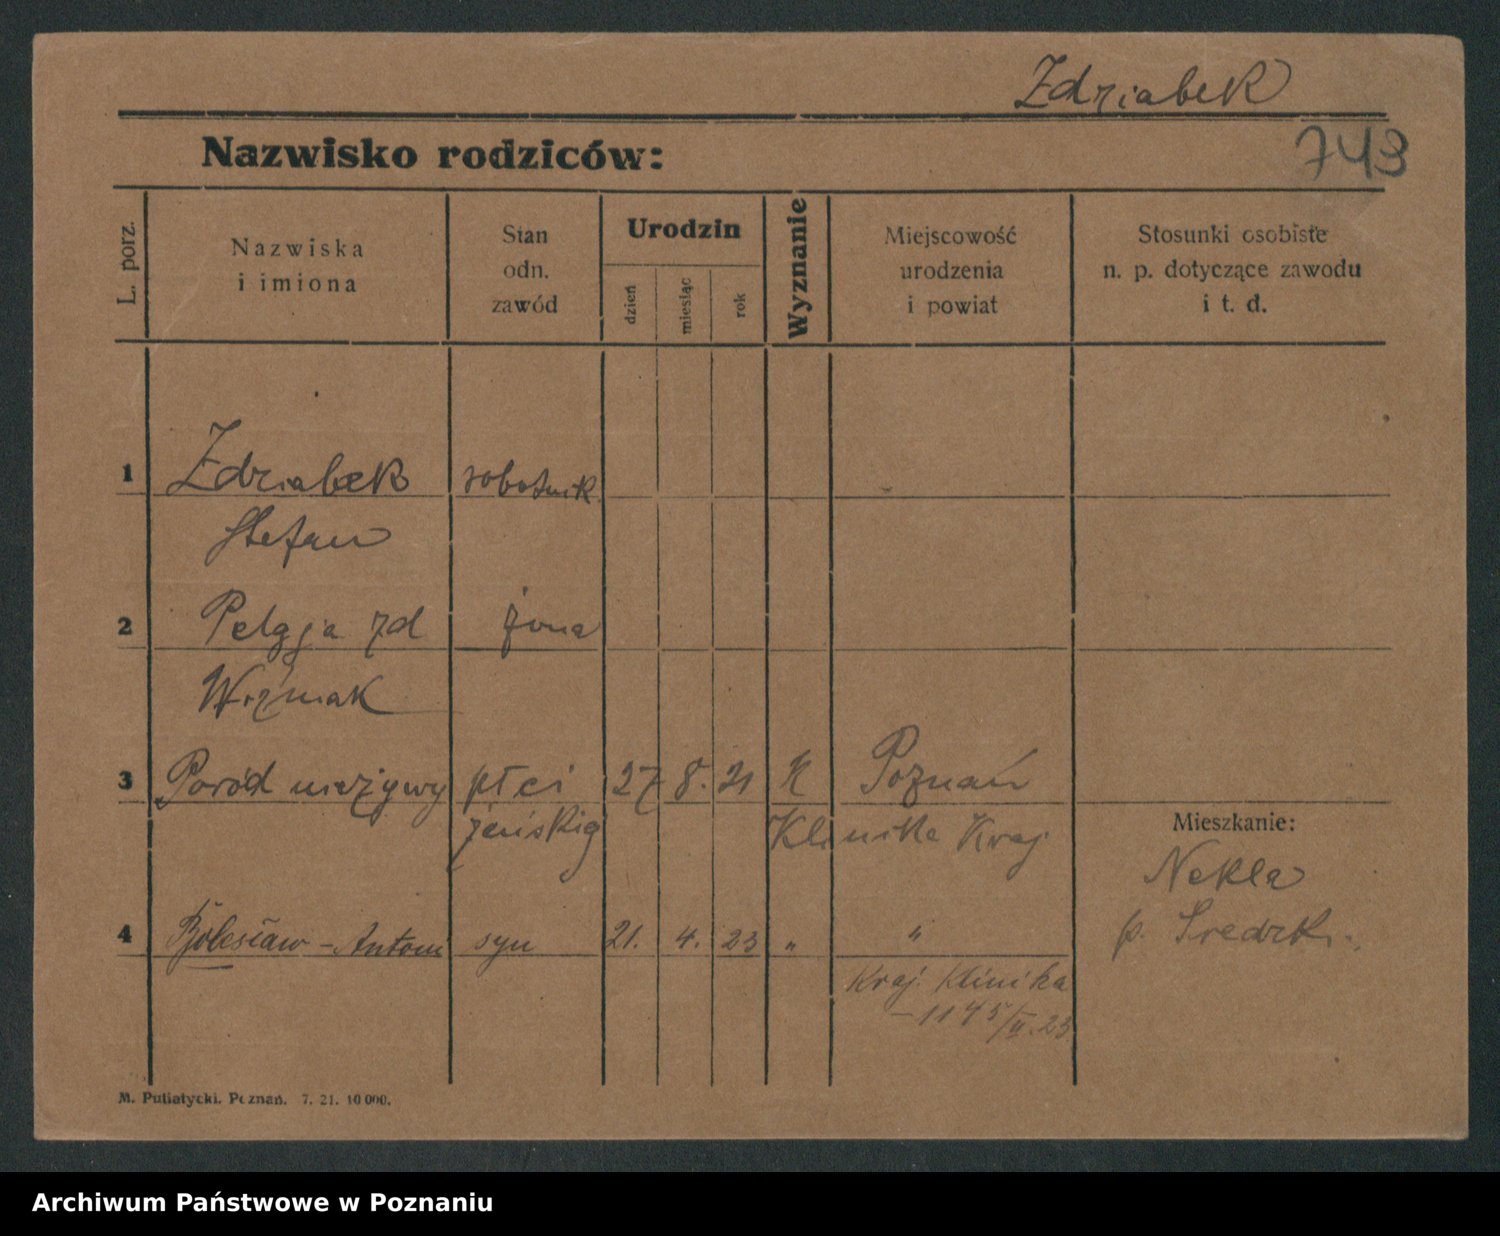 Zdziabek
Nazwisko rodziców:
743
L. porz.
Nazwiska
i imiona
Stan
odn.
zawód
Urodzin
dzień
miesiąc
rok
Wyznanie
Miejscowość
urodzenia
i powiat
Stosunki osobiste
n. p. dotyczące zawodu
i t. d.
1 Zdziabek robotnik
Stefan
2 żona
3 Poród nieżywy płci 27 8. 21 K Poznań
żeńskiej Klinika Kraj
Mieszkanie:
Nekla
p. Średzki.
4 Bolesław - Antoni syn 21. 4. 23 " "
Kraj. Klinika
- 1145/II.23
M. Puliatycki. Poznań. 7. 21. 10 000.
Archiwum Państwowe w Poznaniu